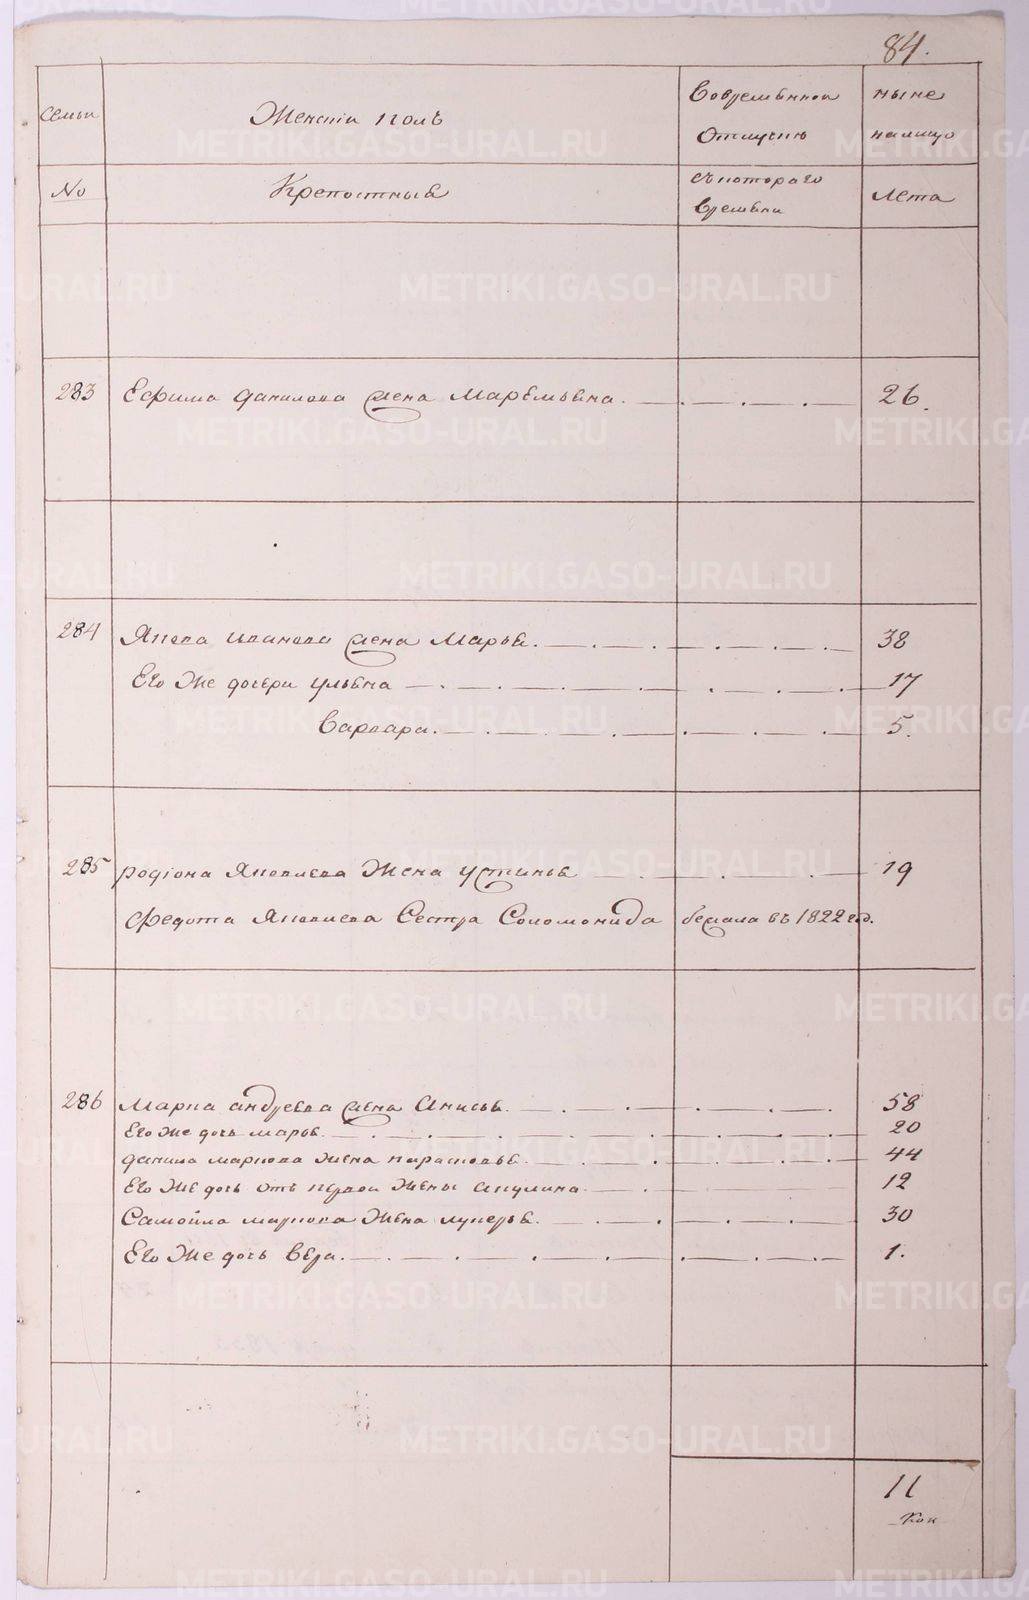 84.
семьи
Женскiи полъ
вовременнои
отлучкѣ
ныне
налицо
No
Крепостныя
съ котораго
времени
Лета
283 Ефима данилова жена Маремьяна. 26.
284 Якова иванова жена Марья. 38
Его Же дочери ульяна 17
варвара. 5.
285 родiона Яковлева Жена устинья 19
Федота Яковлева Сестра Соломонида бежала въ 1822 год.
286 Марка андреева жена Анисья. 58
Его Же дочь марья. 20
данила маркова Жена парасковья 44
Его Же дочь отъ первои Жены акулина. 12
Самойла маркова Жена лукерья. 30
Его Же дочь вѣра. 1.
11
METRIKI.GASO-URAL.RU